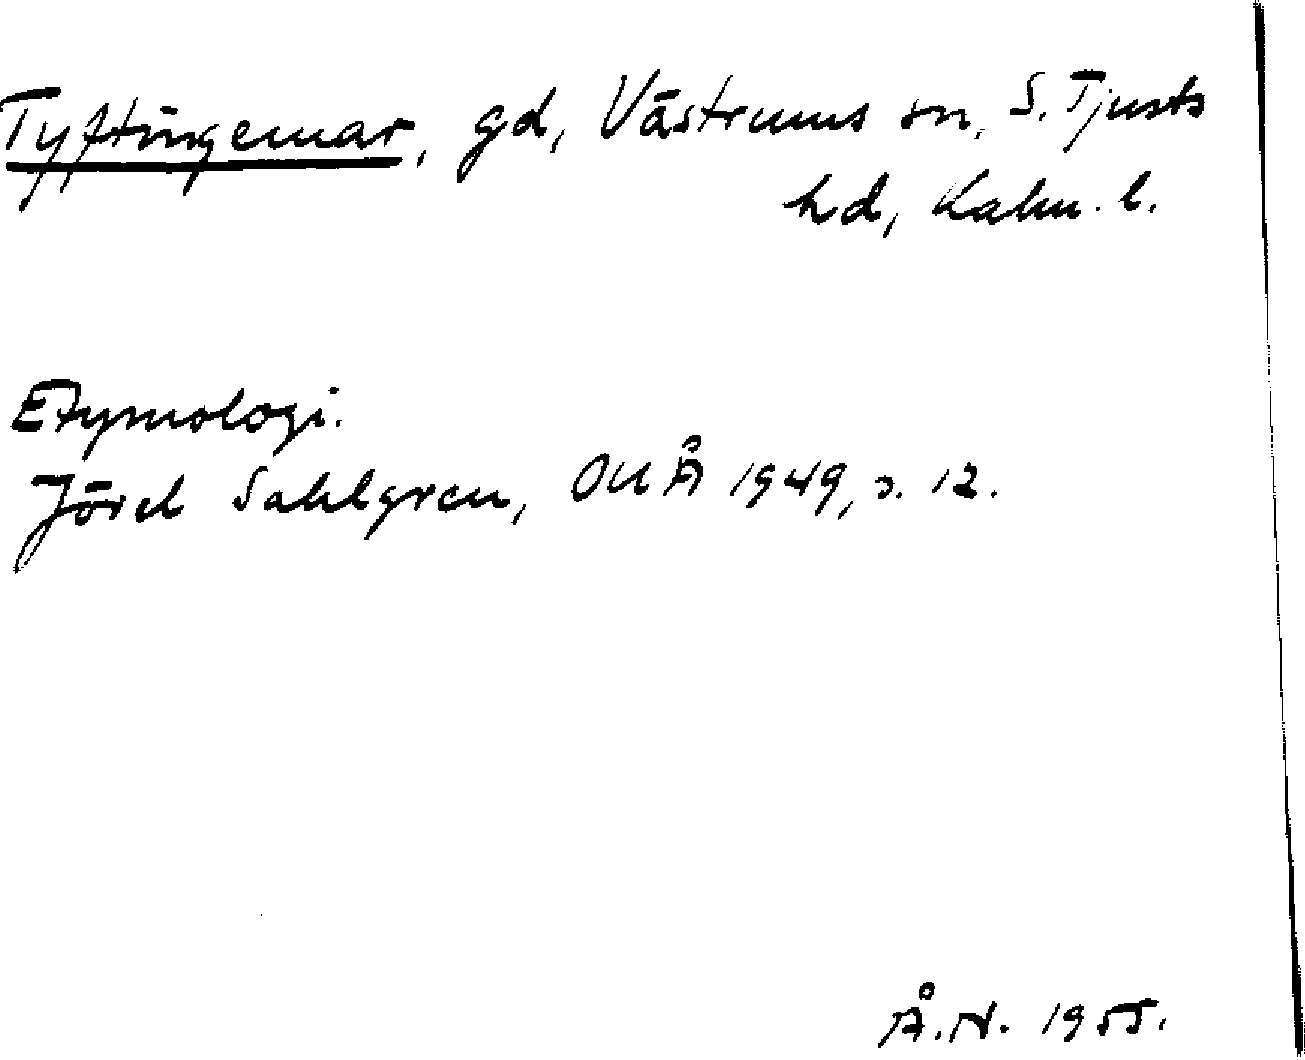 Tyftingemar, gd, Västrums sn, S. Tjusts
hd, Kalm. l.
Etymologi.
Jöran Sahlgren, OUÅ 1949, s. 12.
Å.N. 1955.